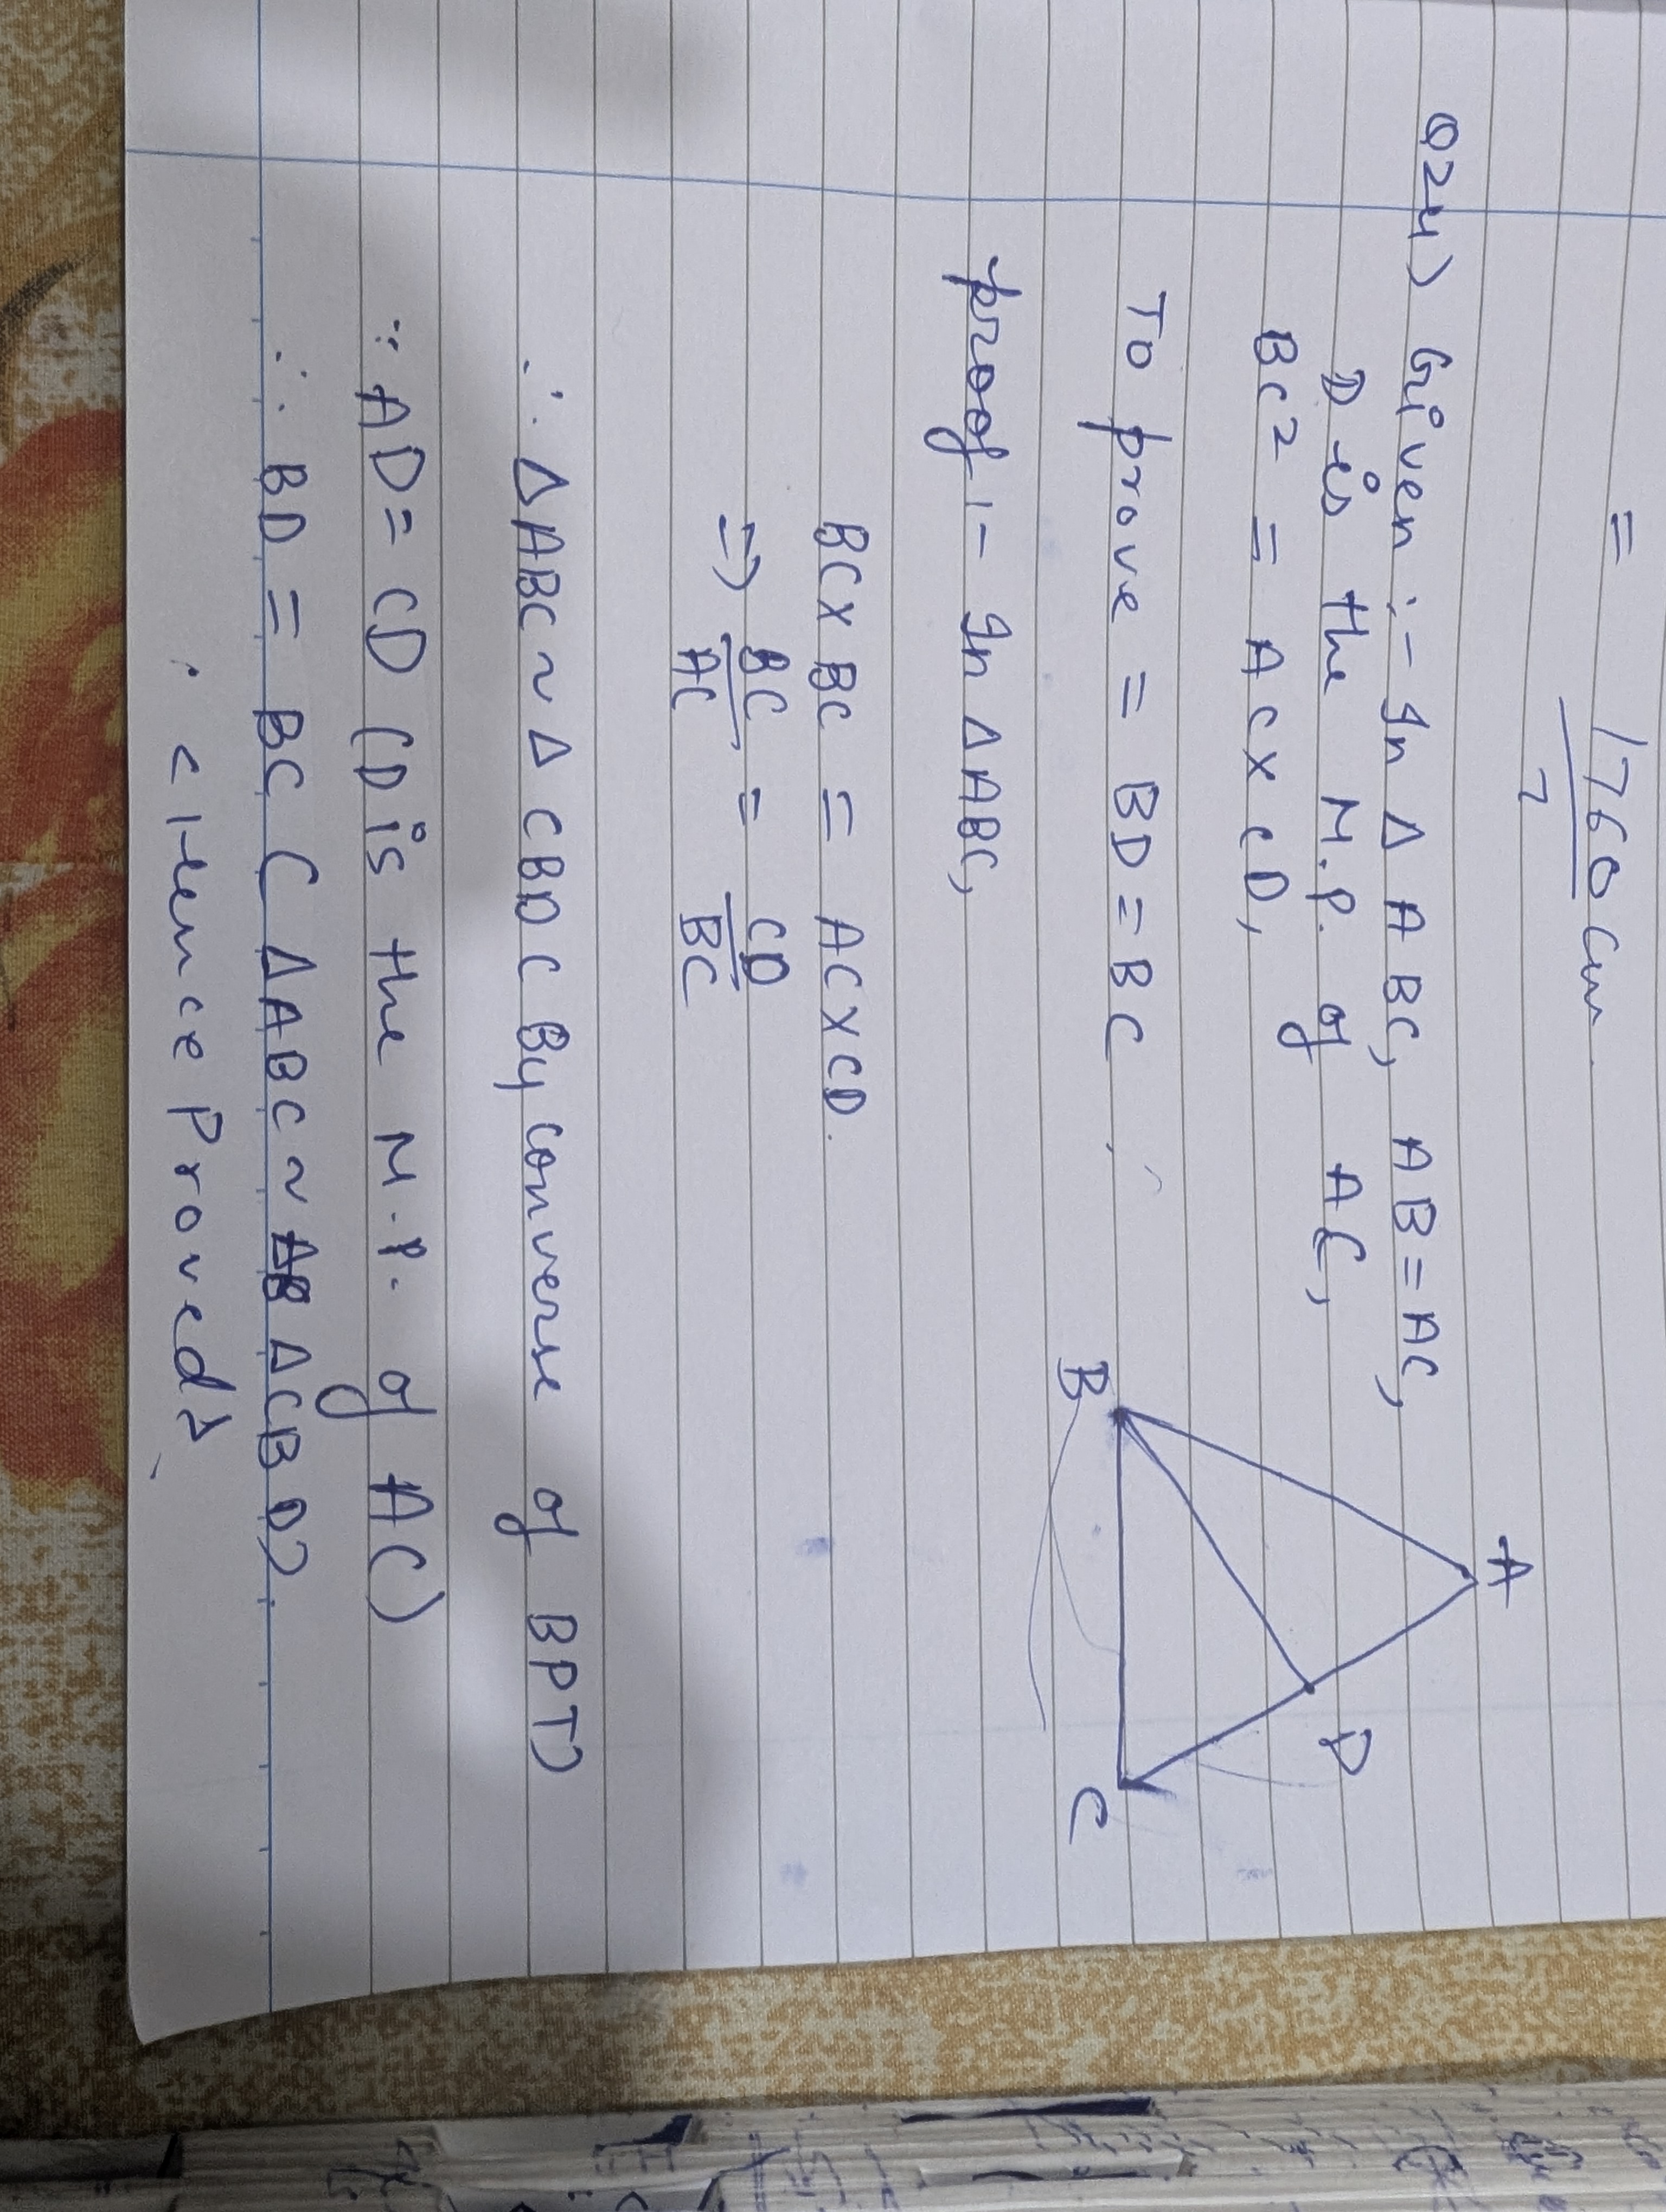 = 1760 cm
7
Q24) Given :- In Δ ABC, AB = AC,
D is the M.P. of AC,
BC² = AC x CD,
To prove = BD = BC
A
D
B
C
proof :- In Δ ABC,
BC x BC = AC x CD.
=> BC/AC = CD/BC
∴ ΔABC ~ Δ CBD ( By converse of BPT)
∵ AD = CD (D is the M.P. of AC)
∴ BD = BC ( ΔABC ~ ΔCBD)
< Hence Proved >